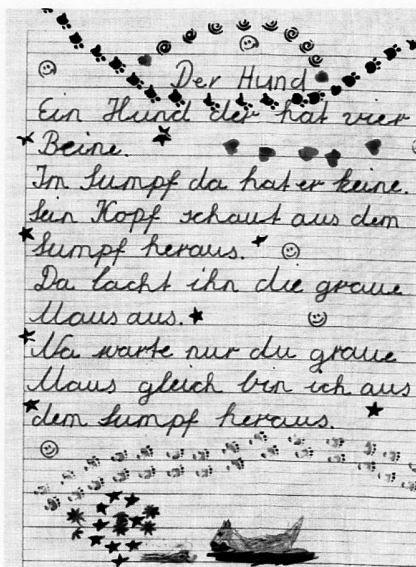 Der Hund
Ein Hund der hat vier
Beine.
Im Sumpf da hat er keine.
Sein Kopf schaut aus dem
Sumpf heraus.
Da lacht ihn die graue
Maus aus.
Na warte nur du graue
Maus gleich bin ich aus
dem Sumpf heraus.